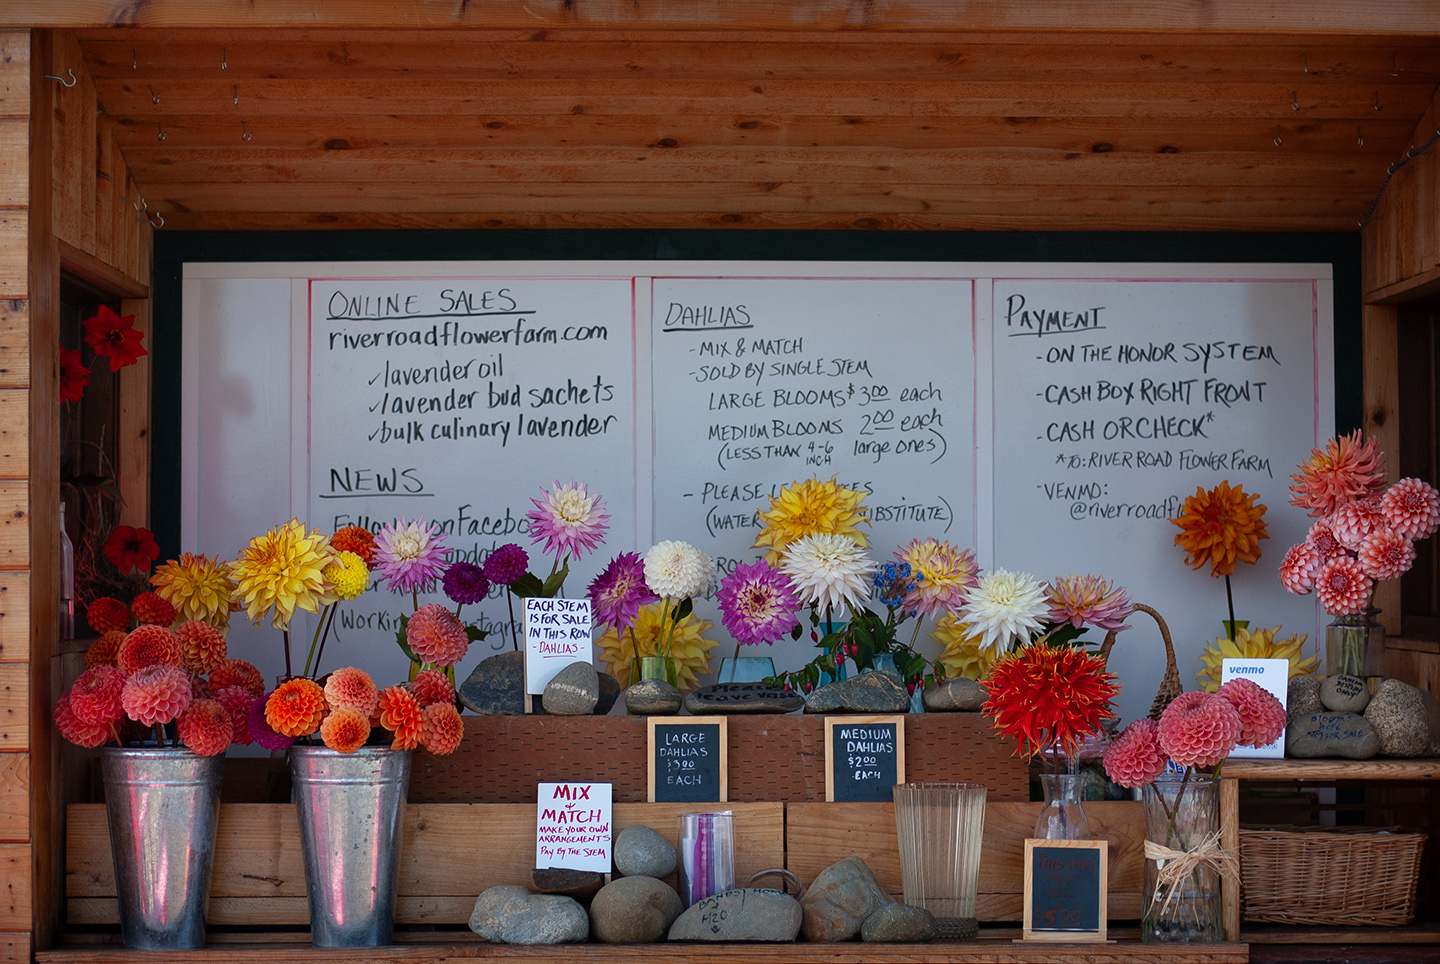 ONLINE SALES
riverroadflowerfarm.com
✓lavender oil
✓lavender bud sachets
✓bulk culinary lavender
NEWS
Follow on Facebo
updat
(Workin
DAHLIAS
- MIX & MATCH
- SOLD BY SINGLE STEM
LARGE BLOOMS $3.00 each
MEDIUM BLOOMS 2.00 each
(LESS THAN 4-6 INCH large ones)
- PLEASE
(WATER
PAYMENT
- ON THE HONOR SYSTEM
- CASH BOX RIGHT FRONT
- CASH OR CHECK*
*TO: RIVER ROAD FLOWER FARM
- VENMO:
@riverroadfl
EACH STEM
IS FOR SALE
IN THIS ROW
- DAHLIAS -
PLEASE
leave vase
venmo
LARGE
DAHLIAS
$3.00
EACH
MEDIUM
DAHLIAS
$2.00
EACH
MIX
&
MATCH
MAKE YOUR OWN
ARRANGEMENTS
PAY BY THE STEM
H2O
BLOOMS
HERE
NOT FOR SALE